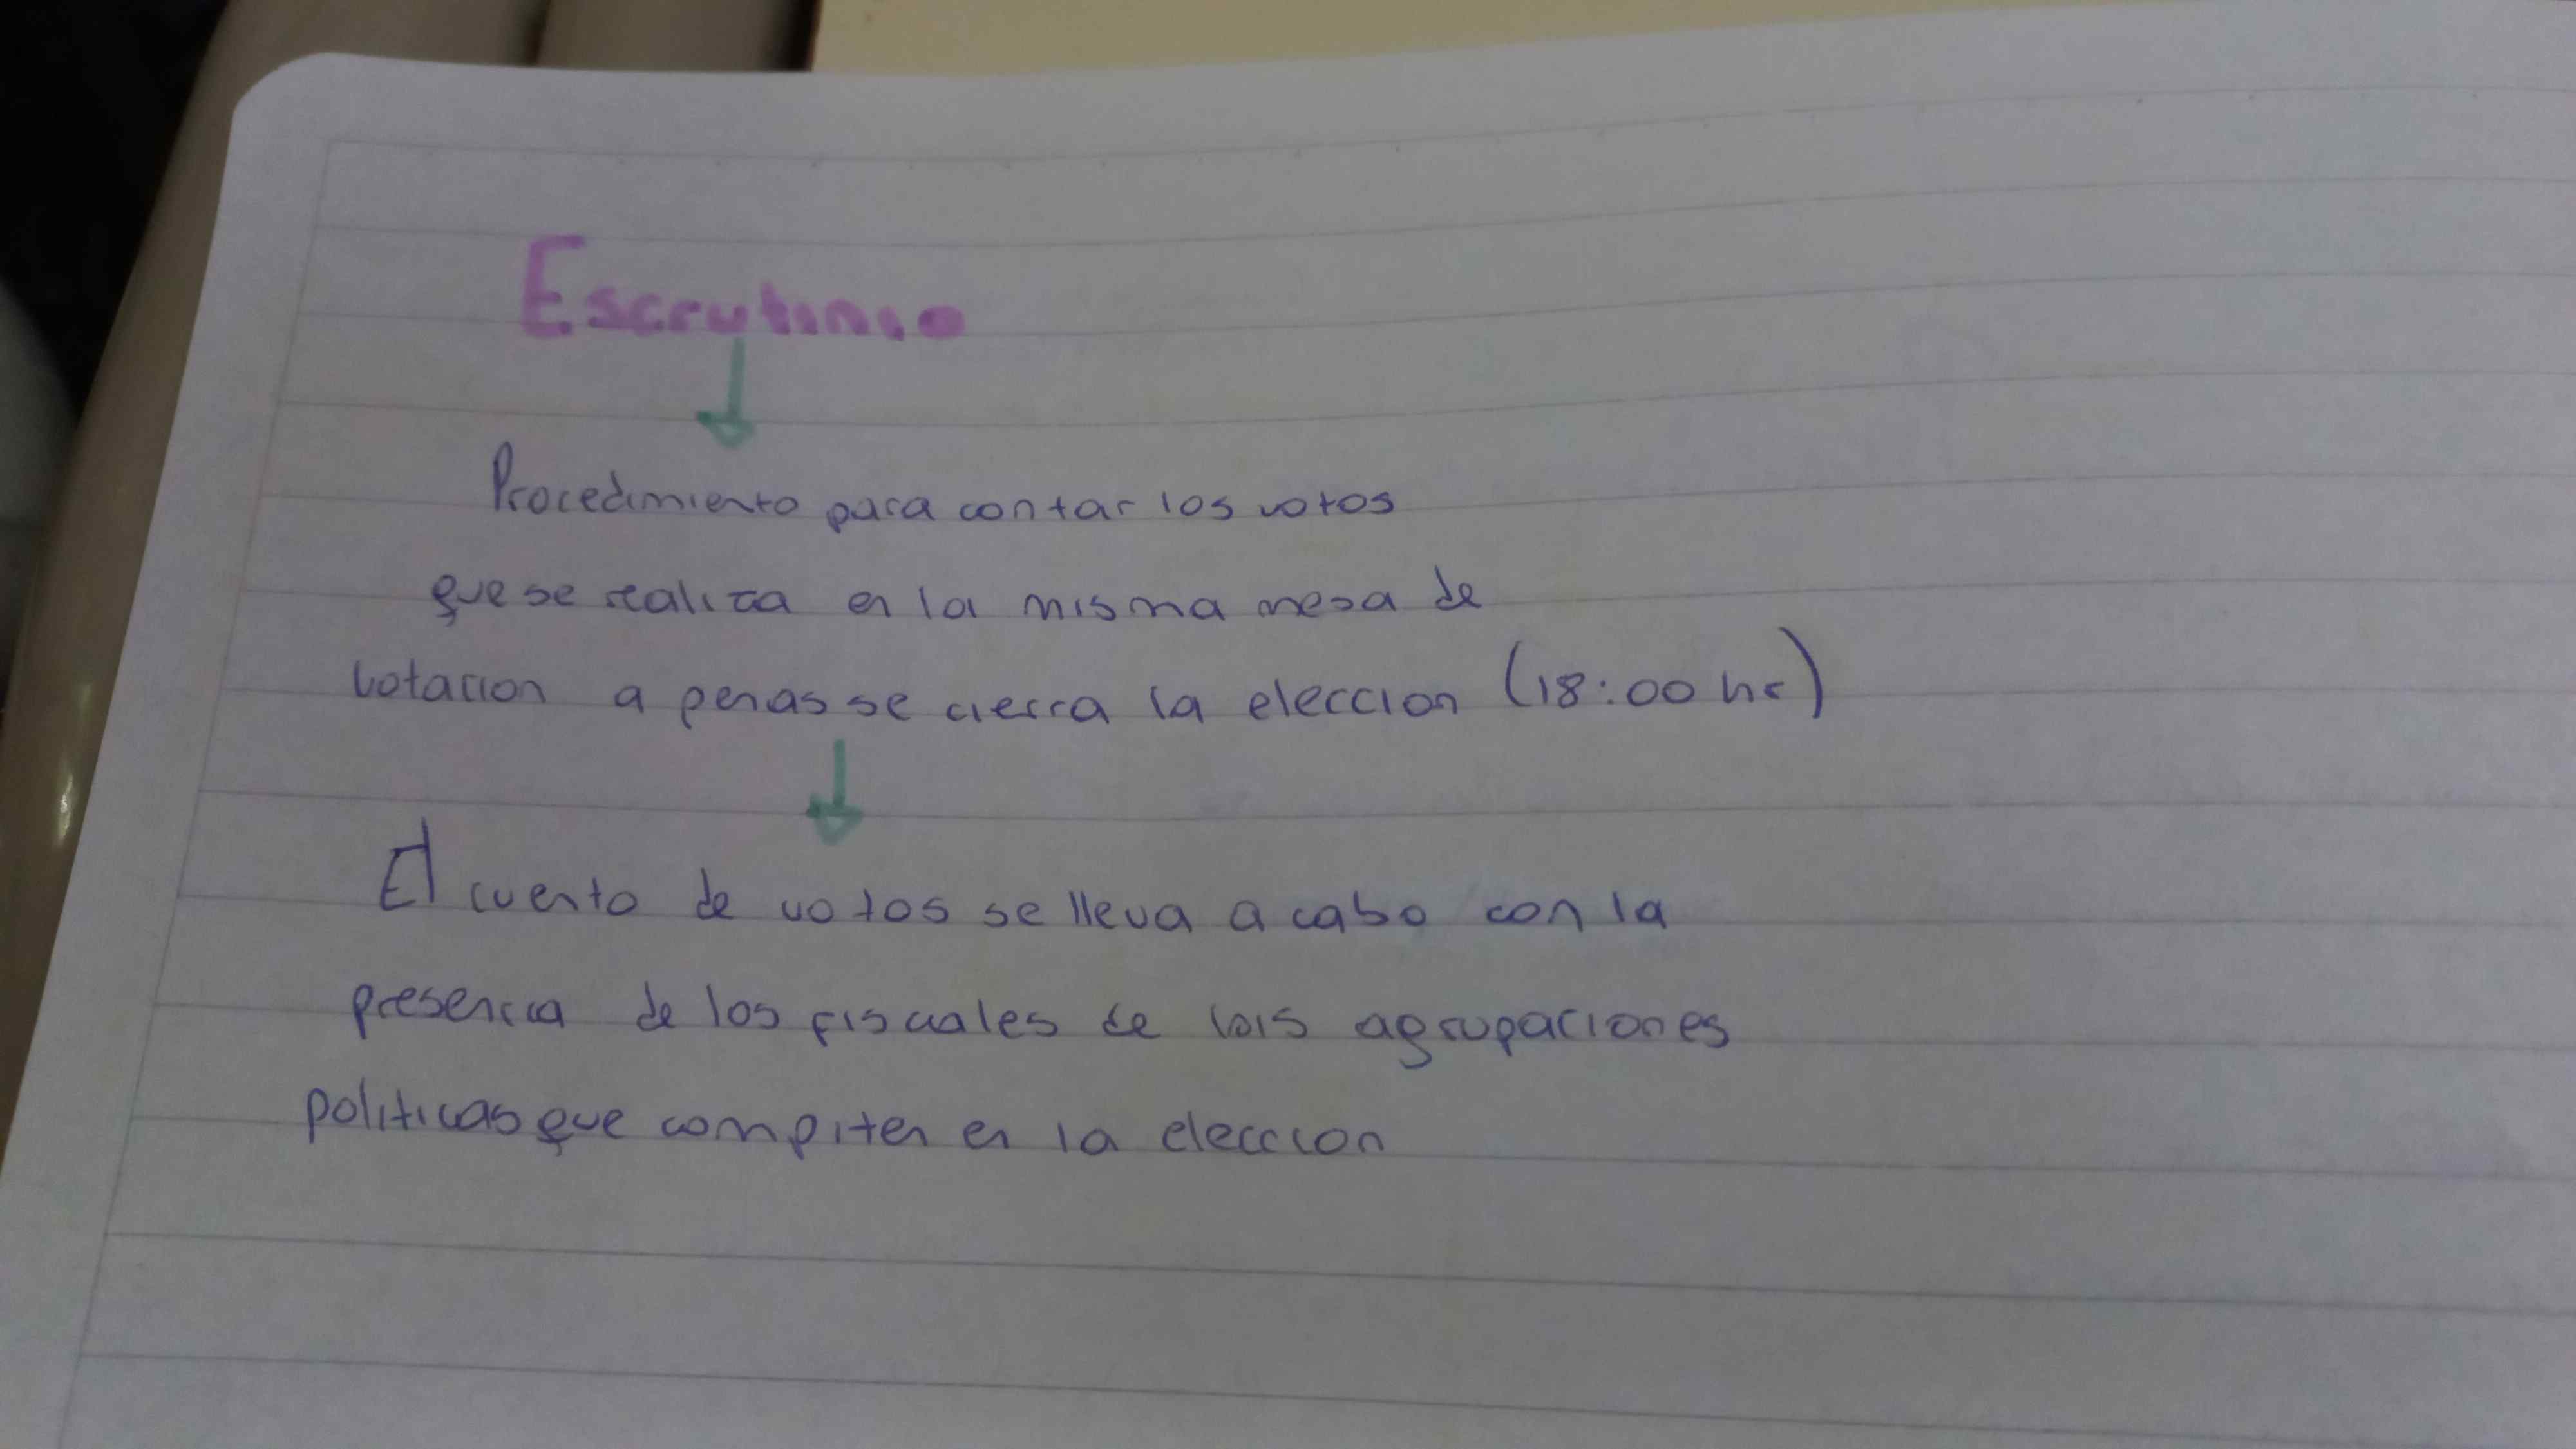 Escrutinio
Procedimiento para contar los votos
que se realiza en la misma mesa de
votacion a penas se cierra la eleccion (18:00 hr)
El cuento de votos se lleva a cabo con la
presencia de los fiscales de las agrupaciones
politicas que compiten en la eleccion